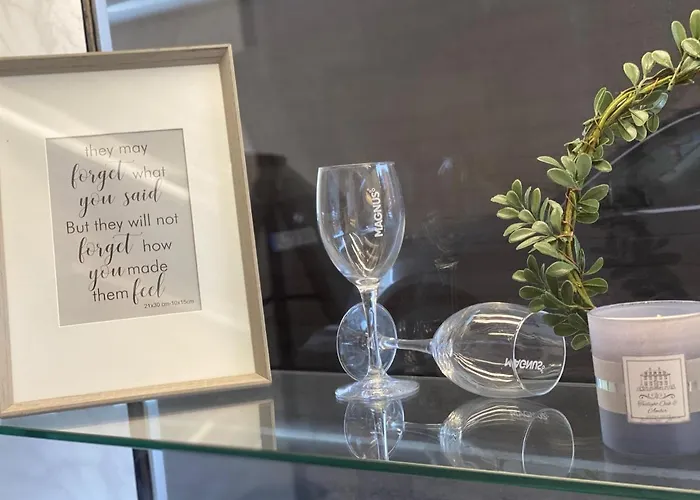 they may
forget what
you said
But they will not
forget how
you made
them feel
21x30 cm/10x15cm
MAGNUS
MAGNUS
& Amber